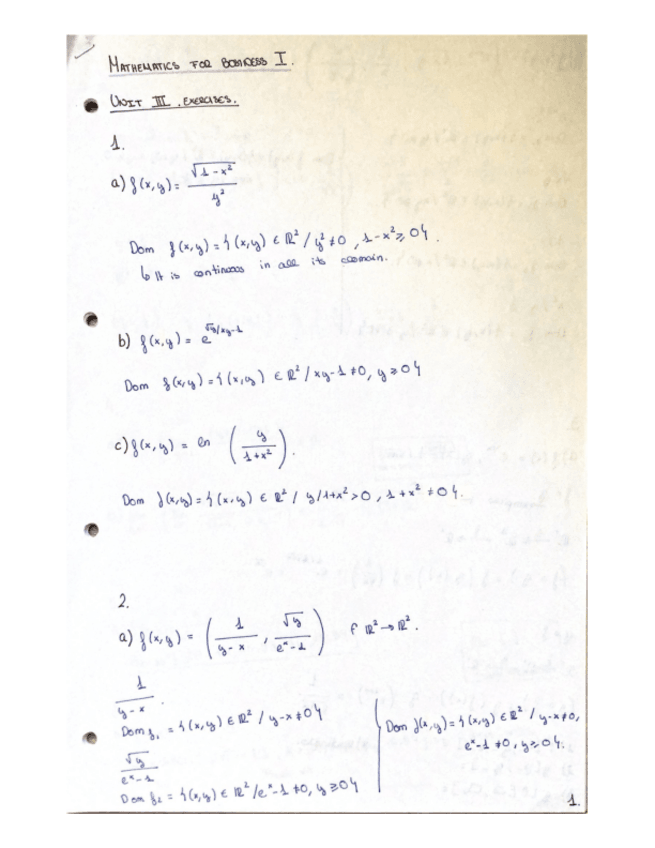 MATHEMATICS FOR BUSINESS I.
UNIT III. EXERCISES.
1.
a) f(x,y) = √(1-x²) / y²
Dom f(x,y) = {(x,y) ∈ ℝ² / y² ≠ 0, 1-x² ≥ 0}.
↳ It is continous in all its domain.
b) f(x,y) = e^(√y/xy-1)
Dom f(x,y) = {(x,y) ∈ ℝ² / xy-1 ≠ 0, y ≥ 0}
c) f(x,y) = ln (y / 1+x²).
Dom f(x,y) = {(x,y) ∈ ℝ² / y/1+x² > 0, 1+x² ≠ 0}.
2.
a) f(x,y) = (1 / y-x , √y / e^x-1) f ℝ² → ℝ².
1 / y-x.
Dom f₁ = {(x,y) ∈ ℝ² / y-x ≠ 0}
√y / e^x-1
Dom f₂ = {(x,y) ∈ ℝ² / e^x-1 ≠ 0, y ≥ 0}
Dom f(x,y) = {(x,y) ∈ ℝ² / y-x ≠ 0,
e^x-1 ≠ 0, y ≥ 0}.
1.